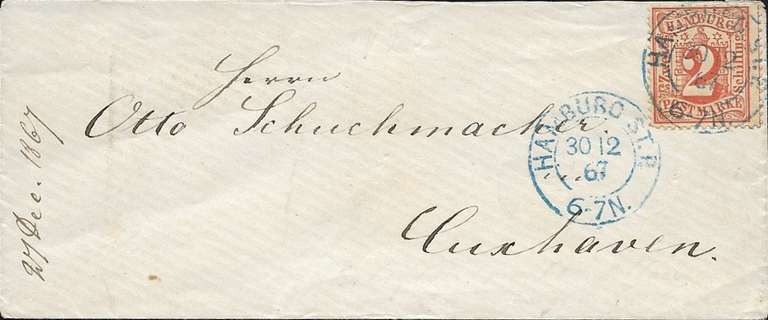 Herrn
Otto Schuchmacher.
in
Cuxhaven.
27 Dec. 1867
HAMBURG ST.P.
30 12
67
6-7N.
HAMBURG
2
POSTMARKE
Schilling
6-7N.